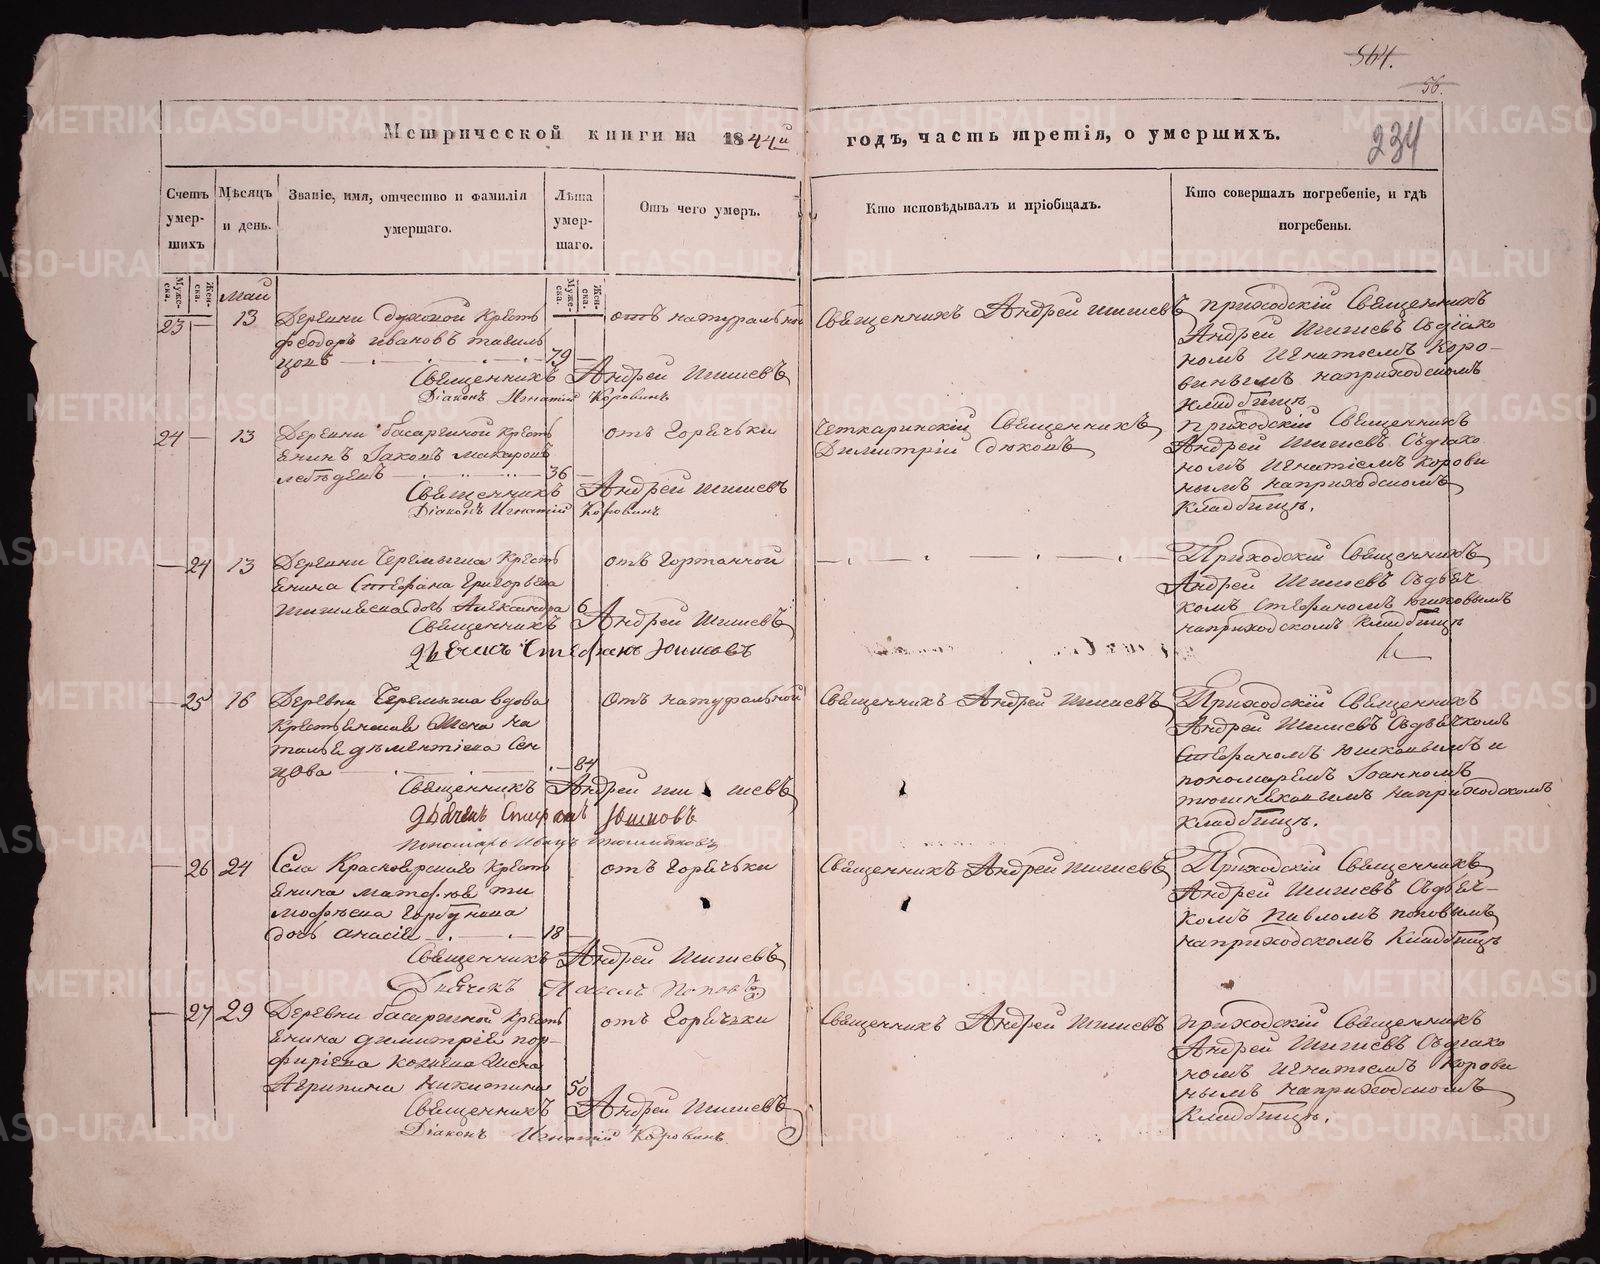 564.
56.
234
Метрической книги на 1844й годъ, часть третія, о умершихъ.
Счетъ умер-шихъ
Мѣсяцъ и день.
Званіе, имя, отчество и фамилія умершаго.
Лѣта умер-шаго.
Отъ чего умеръ.
Кто исповѣдывалъ и пріобщалъ.
Кто совершалъ погребеніе, и гдѣ погребены.
Муже-ска.
Жен-ска.
Муже-ска.
Жен-ска.
Май
23 — 13
Деревни Сухой Крестъ
Феодоръ Ивановъ
79 —
отъ натуральной
Священникъ Андрей Шишевъ
Діаконъ Игнатій Коровинъ
Священникъ Андрей Шишевъ
приходскій Священникъ
Андрей Шишевъ Съдіако
номъ Игнатіемъ Коро-
винымъ наприходскомъ
Кладбищѣ
24 — 13
Деревни басаргиной Кресть
енинъ Іаковъ Макаровъ
Лебедевъ
36 —
отъ Горячьки
Священникъ Андрей Шишевъ
Діаконъ Игнатій Коровинъ
Четкаринскій Священникъ
Димитрій Дюковъ
приходскій Священникъ
Андрей Шишевъ Съдіако
номъ Игнатіемъ Корови
нымъ наприходскомъ
Кладбищѣ.
— 24 13
Деревни Черемыша Кресть
енина Стефана Григорьева
дочь Александра
6
отъ Гортанной
Священникъ Андрей Шишевъ
Дьячекъ Стефанъ Юшковъ
Приходскій Священникъ
Андрей Шишевъ Съдьяч
комъ Стефаномъ Юшковымъ
наприходскомъ Кладбищѣ
— 25 16
Деревни Черемыша вдова
Крестьянская Жена На
талья Дѣментіева Сен
цова
84
Отъ натуральной
Священникъ Андрей Шишевъ
Дьячекъ Стефанъ Юшковъ
пономарь Иванъ
Священникъ Андрей Шишевъ
Приходскій Священникъ
Андрей Шишевъ Съдьячкомъ
Стефаномъ Юшковымъ и
пономаремъ Іоанномъ
наприходскомъ
Кладбищѣ.
— 26 24
Села Красноярскаго Кресть
енина Матфѣя Ти
мофѣева Горбунова
дочь Анасія
18 —
отъ Горячьки
Священникъ Андрей Шишевъ
Дьячекъ Павелъ Поповъ
Священникъ Андрей Шишевъ
Приходскій Священникъ
Андрей Шишевъ Съдьяч-
комъ Павломъ поповымъ
наприходскомъ Кладбищѣ
— 27 29
Деревни басаргиной Кресть
енина Димитрія пор-
фиріева Жена
Агрипина Никитина
50
отъ Горячьки
Священникъ Андрей Шишевъ
Діаконъ Игнатій Коровинъ
Священникъ Андрей Шишевъ
приходскій Священникъ
Андрей Шишевъ Съдіако
номъ Игнатіемъ Корови
нымъ наприходскомъ
Кладбищѣ.
METRIKI.GASO-URAL.RU